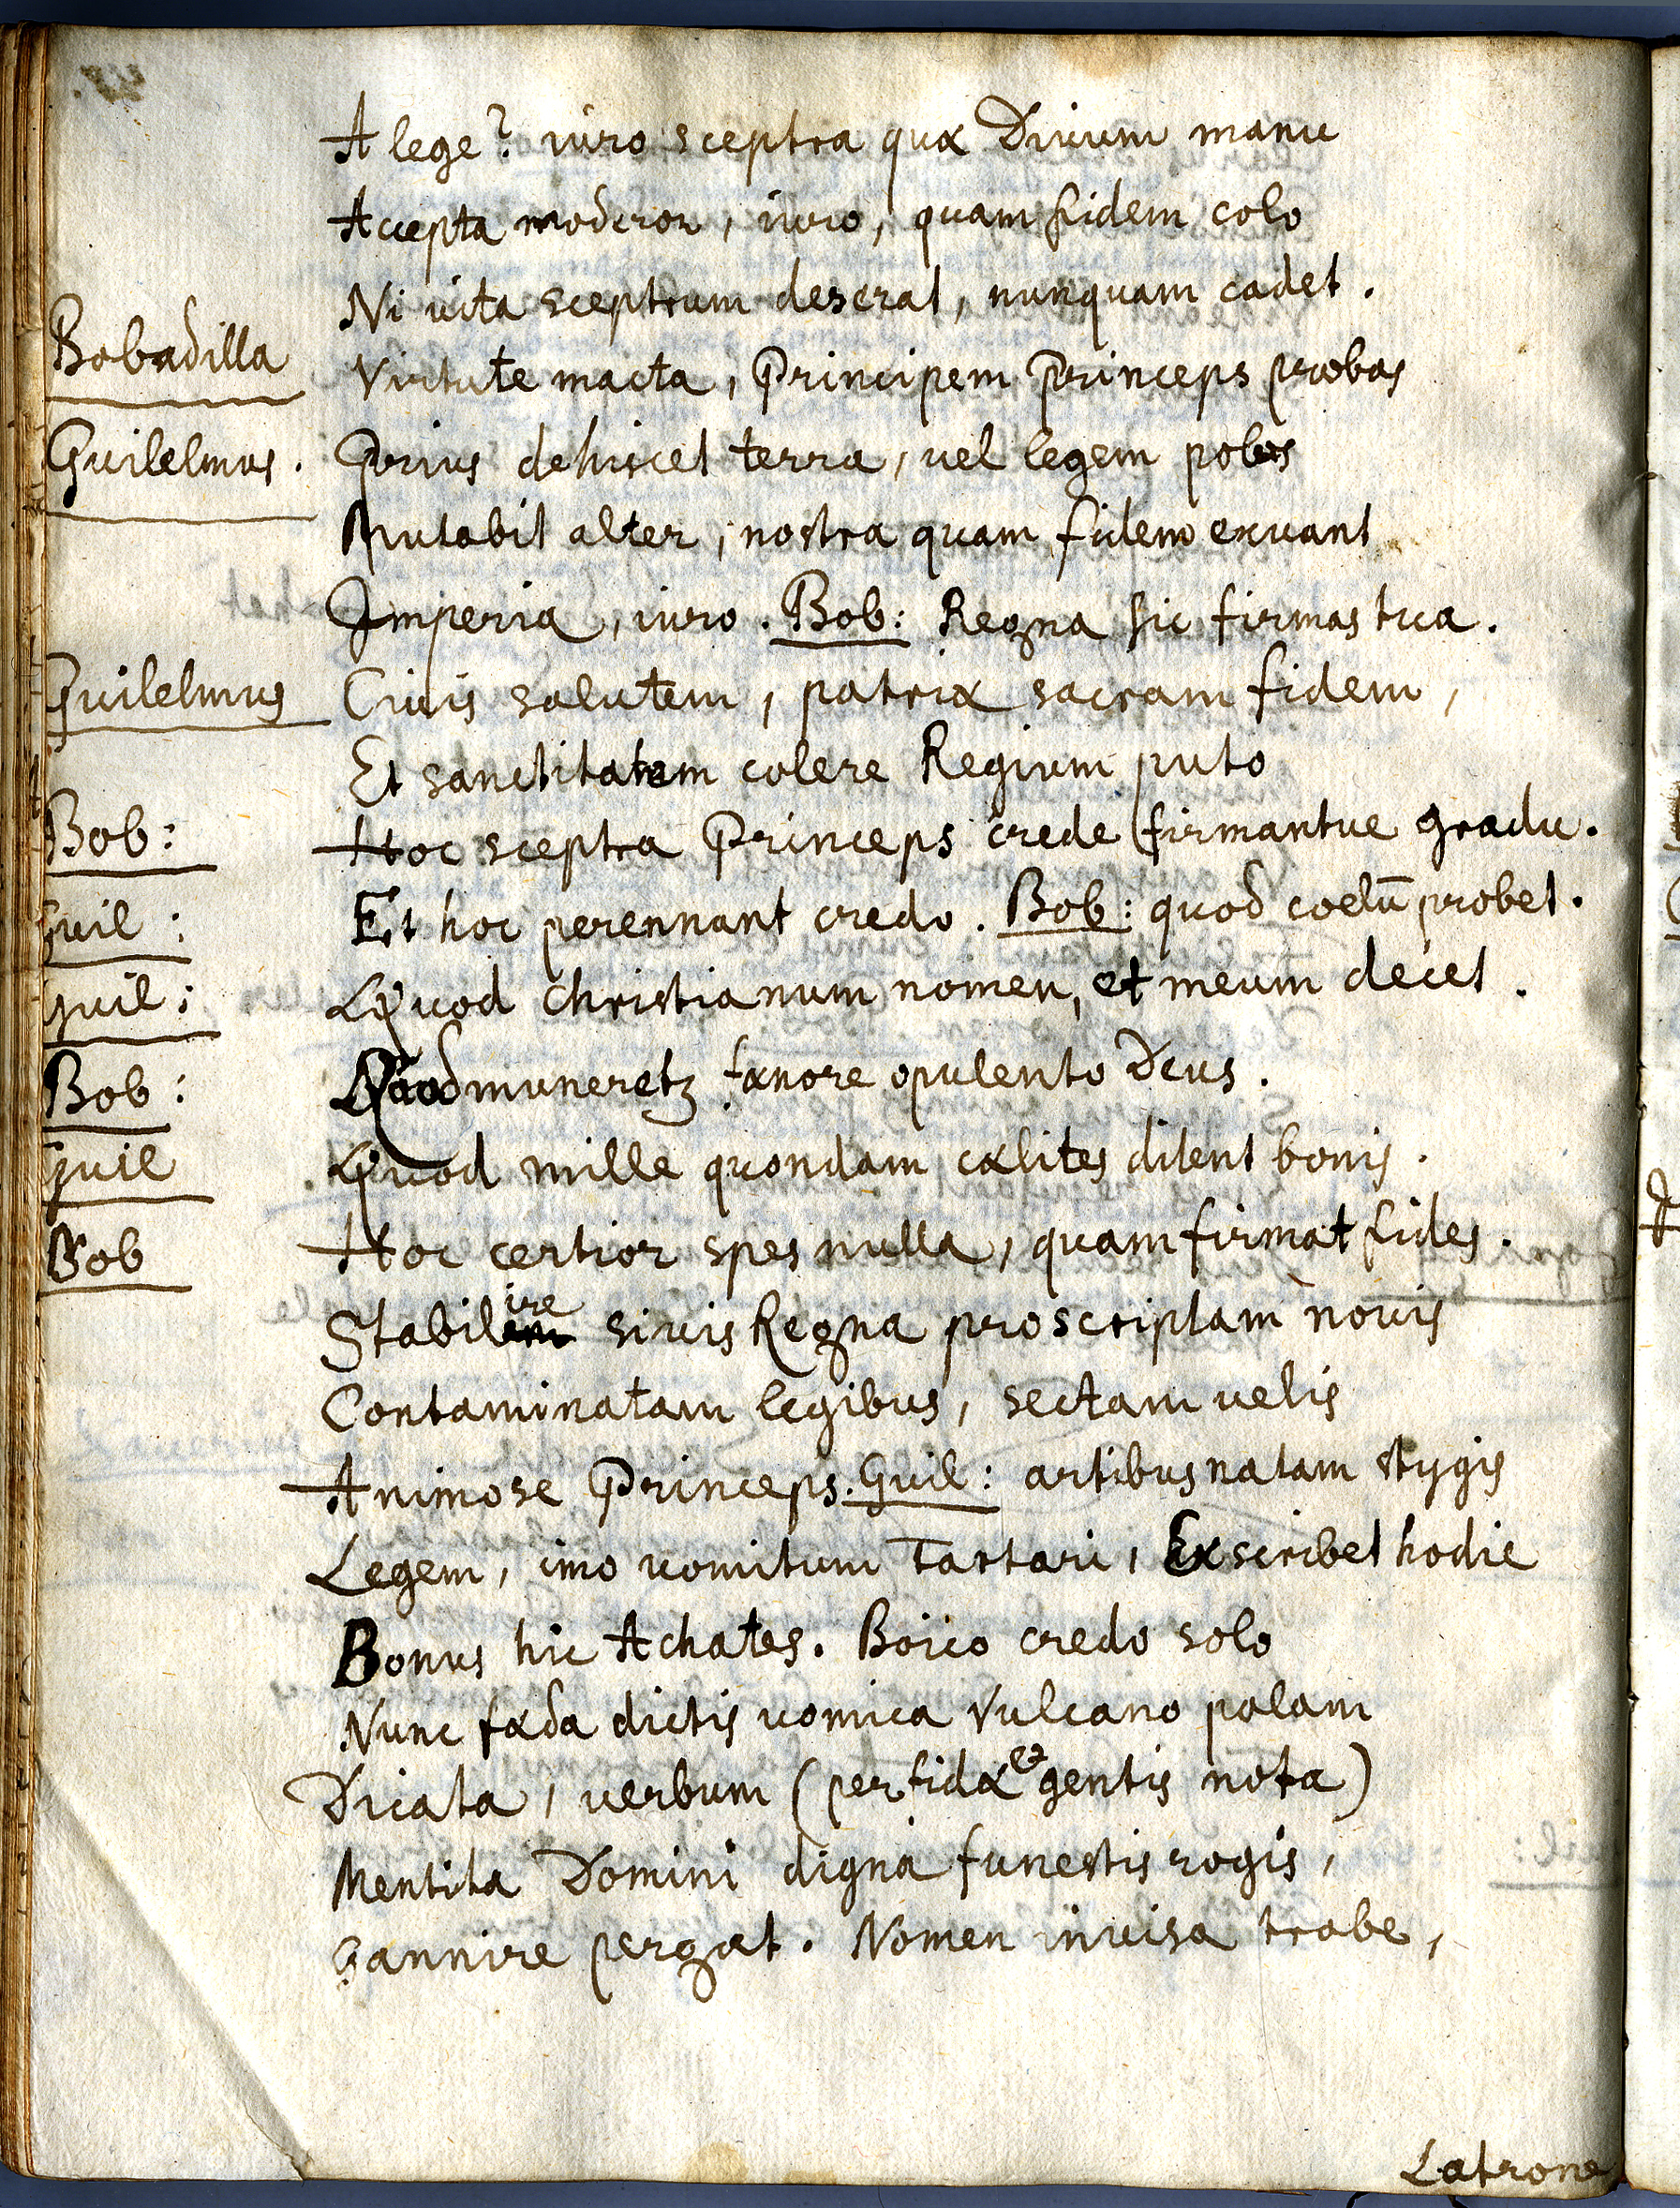 A lege? iuro sceptra quæ Diuum manu
Accepta moderor, iuro, quam fidem colo
Ni uita sceptrum deserat, nunquam cadet.
Bobadilla Virtute macta, Principem Princeps probas
Guilelmus. Prius dehiscet terra, uel legem polus
Mutabit alter, nostra quam fidem exuant
Imperia, iuro. Bob: Regna sic firmas tua.
Guilelmus Ciuis salutem, patriæ sacram fidem,
Et sanctitatem colere Regium puto
Bob: Hoc sceptra Princeps crede firmantur gradu.
Guil: Et hoc perennant credo. Bob: quod coelū probet.
Guil: Quod Christianum nomen, et meum decet.
Bob: Quod muneretꝫ fænore opulento Deus.
Guil Quod mille quondam cælites ditent bonis.
Bob Hoc certior spes nulla, quam firmat fides.
Stabilire siuis Regna proscriptam nouis
Contaminatam legibus, sectam uelis
Animose Princeps. Guil: artibus natam stygis
Legem, imo uomitum Tartari, Exscribet hodie
Bonus hic Achates. Boico credo solo
Nunc fæda dictis uomica Vulcano palam
Dicata, uerbum (perfidæ & gentis nota)
Mentita Domini digna funestis rogis,
Gannire pergat. Nomen inuisa trabe,
Latrone